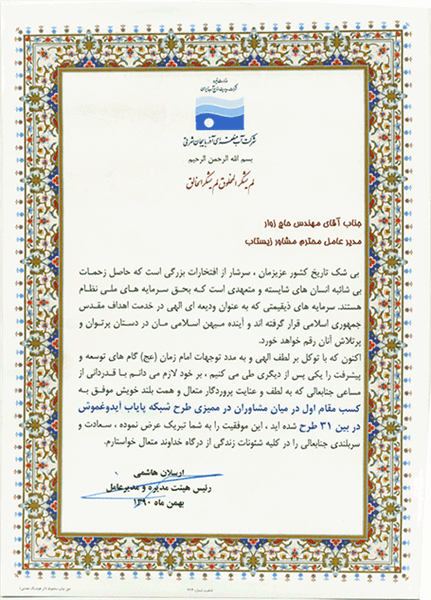 وزارت نیرو
شرکت آب منطقه‌ای آذربایجان شرقی
بسم الله الرحمن الرحیم
لم یشکر المخلوق لم یشکر الخالق
جناب آقای مهندس حاج زوار
مدیر عامل محترم مشاور زیستاب
بی شک تاریخ کشور عزیزمان ، سرشار از افتخارات بزرگی است که حاصل زحمات
بی شائبه انسان های شایسته و متعهدی است که بحق سرمایه های ملی نظام
هستند. سرمایه های ذیقیمتی که به عنوان ودیعه ای الهی در خدمت اهداف مقدس
جمهوری اسلامی قرار گرفته اند و آینده میهن اسلامی مان در دستان پرتوان و
پرتلاش آنان رقم خواهد خورد.
اکنون که با توکل بر لطف الهی و به مدد توجهات امام زمان (عج) گام های توسعه و
پیشرفت را یکی پس از دیگری طی می کنیم ، بر خود لازم می دانم با قدردانی از
مساعی جنابعالی که به لطف و عنایت پروردگار متعال و همت بلند خویش موفق به
کسب مقام اول در میان مشاوران در ممیزی طرح شبکه پایاب آیدوغموش
در بین ۳۱ طرح شده اید ، این موفقیت را به شما تبریک عرض نموده ، سعادت و
سربلندی جنابعالی را در کلیه شئونات زندگی از درگاه خداوند متعال خواستارم.
ارسلان هاشمی
رئیس هیئت مدیره و مدیرعامل
بهمن ماه ۱۳۹۰